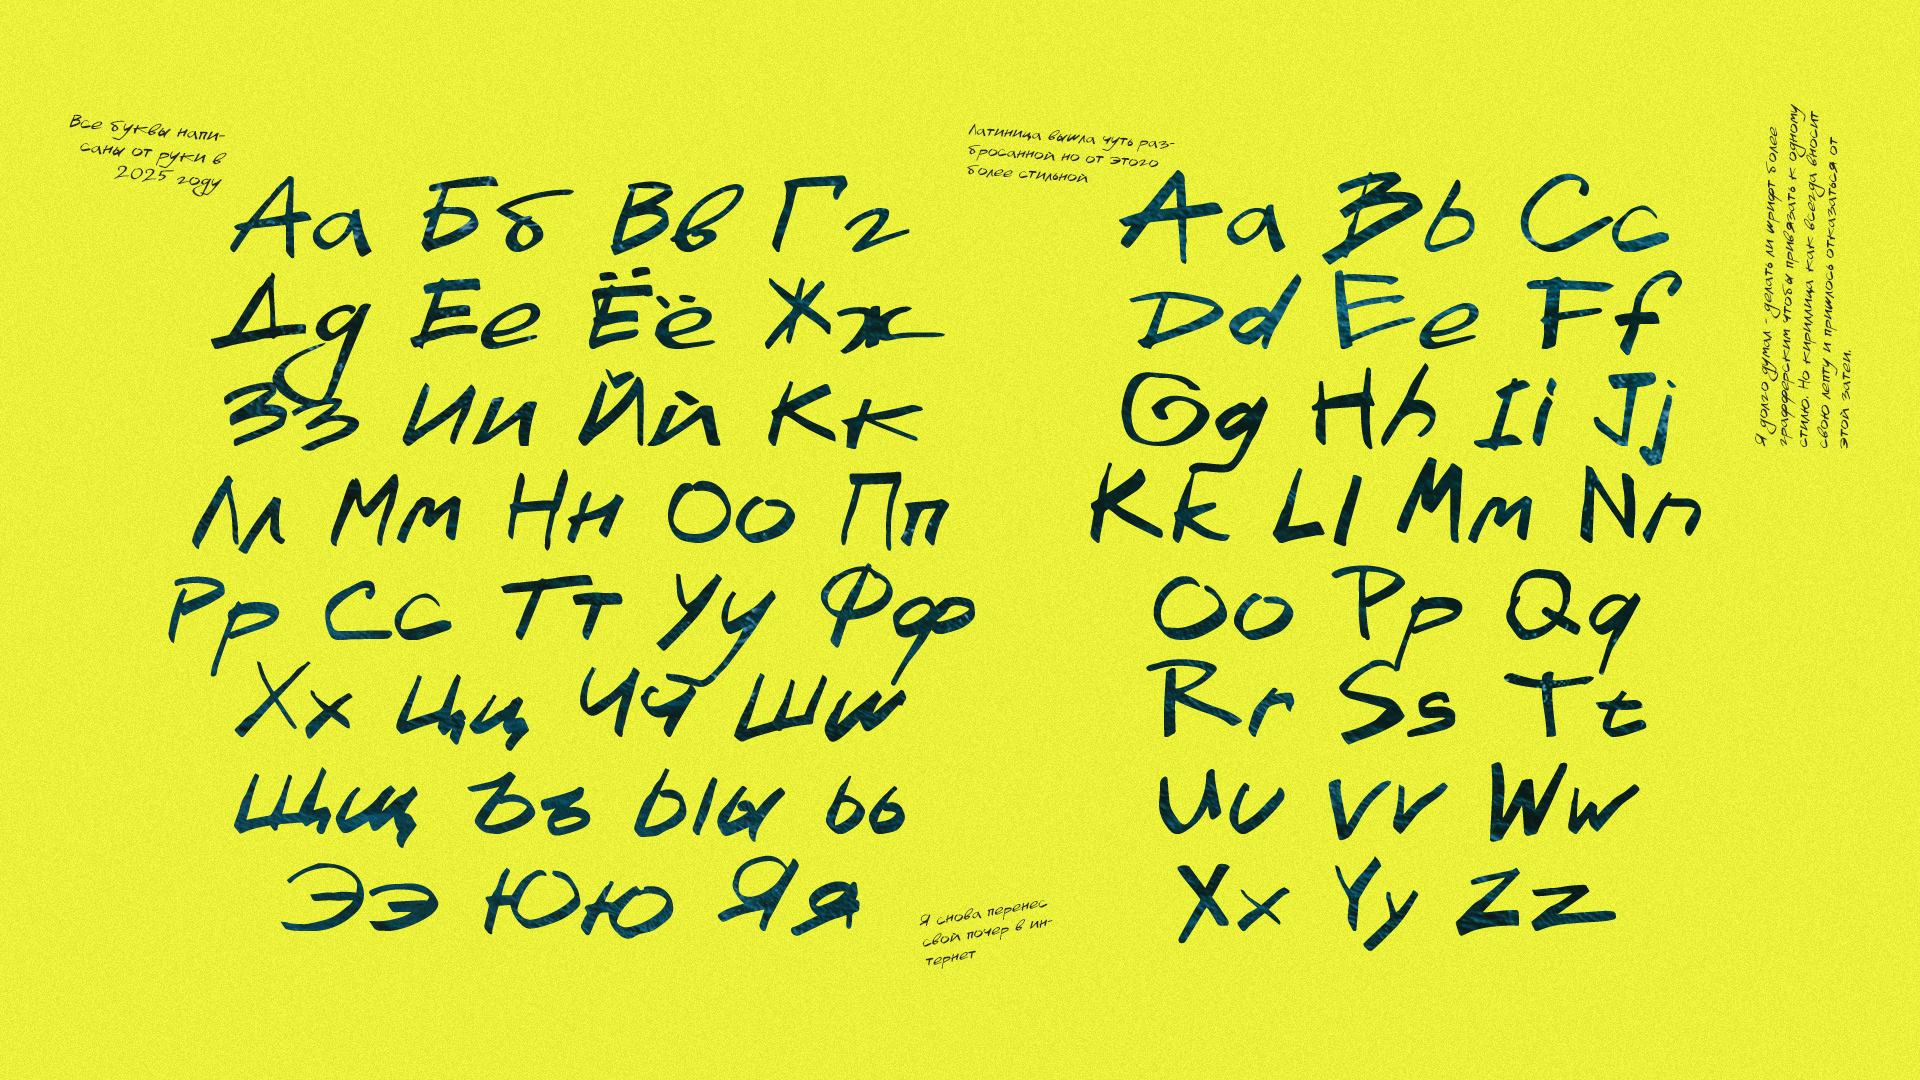 Все буквы напи-
саны от руки в
2025 году
Аа Бб Вв Гг
Дд Ее Ёё Жж
Зз Ии Йй Кк
Лл Мм Нн Оо Пп
Рр Сс Тт Уу Фф
Хх Цц Чч Шш
Щщ Ъъ Ыы Ьь
Ээ Юю Яя
Латиница вышла чуть раз-
бросанной но от этого
более стильной
Aa Bb Cc
Dd Ee Ff
Gg Hh Ii Jj
Kk Ll Mm Nn
Oo Pp Qq
Rr Ss Tt
Uu Vv Ww
Xx Yy Zz
Я снова перенес
свой почер в ин-
тернет
Я долго думал - делать ли шрифт более
графферским чтобы привязать к одному
стилю. Но кириллица как всегда вносит
свою лепту и пришлось отказаться от
этой затеи.